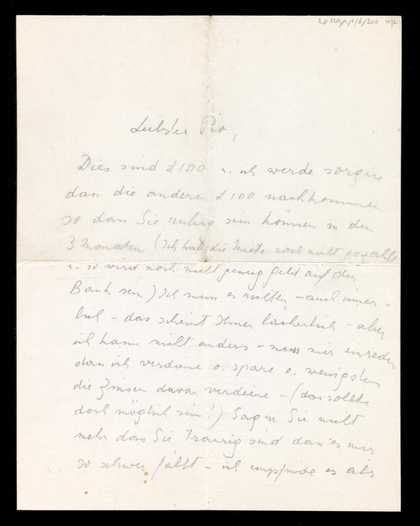 Liebster Pio,
Dies sind £100 u. ich werde sorgen
dan die anderen £100 nachkommen
so dan Sie ruhig sein können in den
3 Monaten (Ich hab die Miete noch nicht gezahlt
u. so wird noch nicht genug Geld auf der
Bank sein) Ich muss es sollen – auch immer
– das scheint Ihnen lächerlich – aber
ich kann nicht anders – muss mir einreden
dan ich verdiene o. spare o. wenigstens
die Zinsen davon verdiene – (das sollte
doch möglich sein!) Sagen Sie nicht
mehr dan Sie traurig sind dan es mir
so schwer fällt – ich empfinde es als